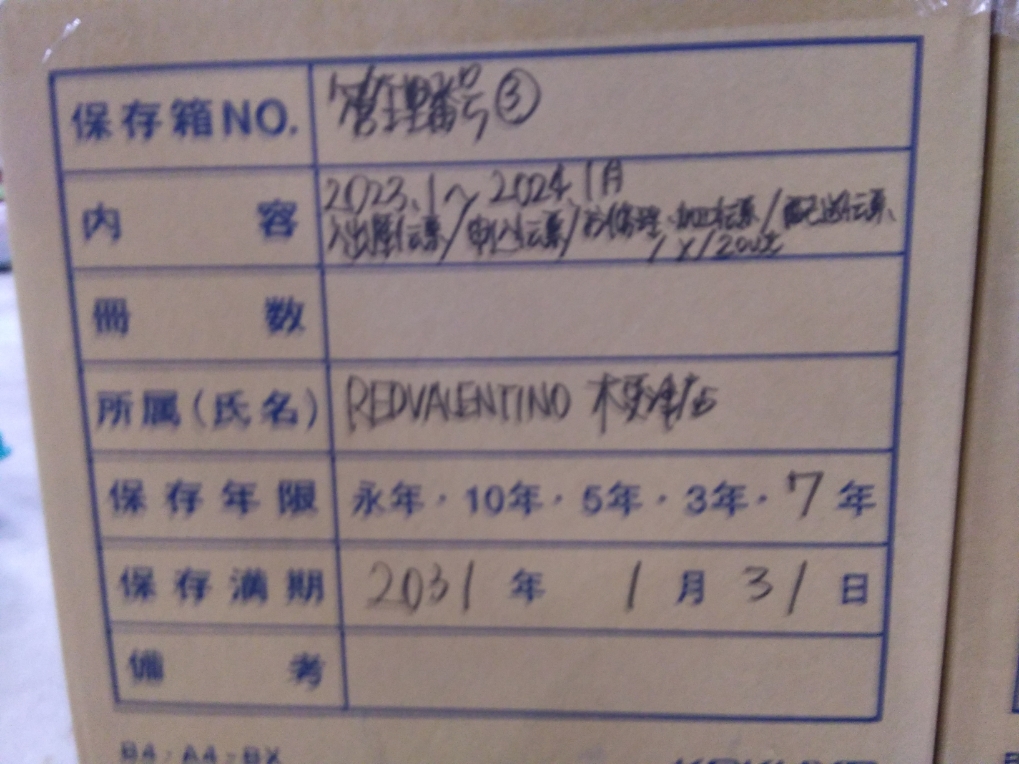 保存箱NO. 管理番号③
内容 2023.1〜2024.1月
入出庫伝票/申込伝票/お修理・加工伝票/配送伝票、
冊数
所属(氏名) REDVALENTINO 木更津店
保存年限 永年・10年・5年・3年・7年
保存満期 2031年 1月31日
備考
B4・A4・BX